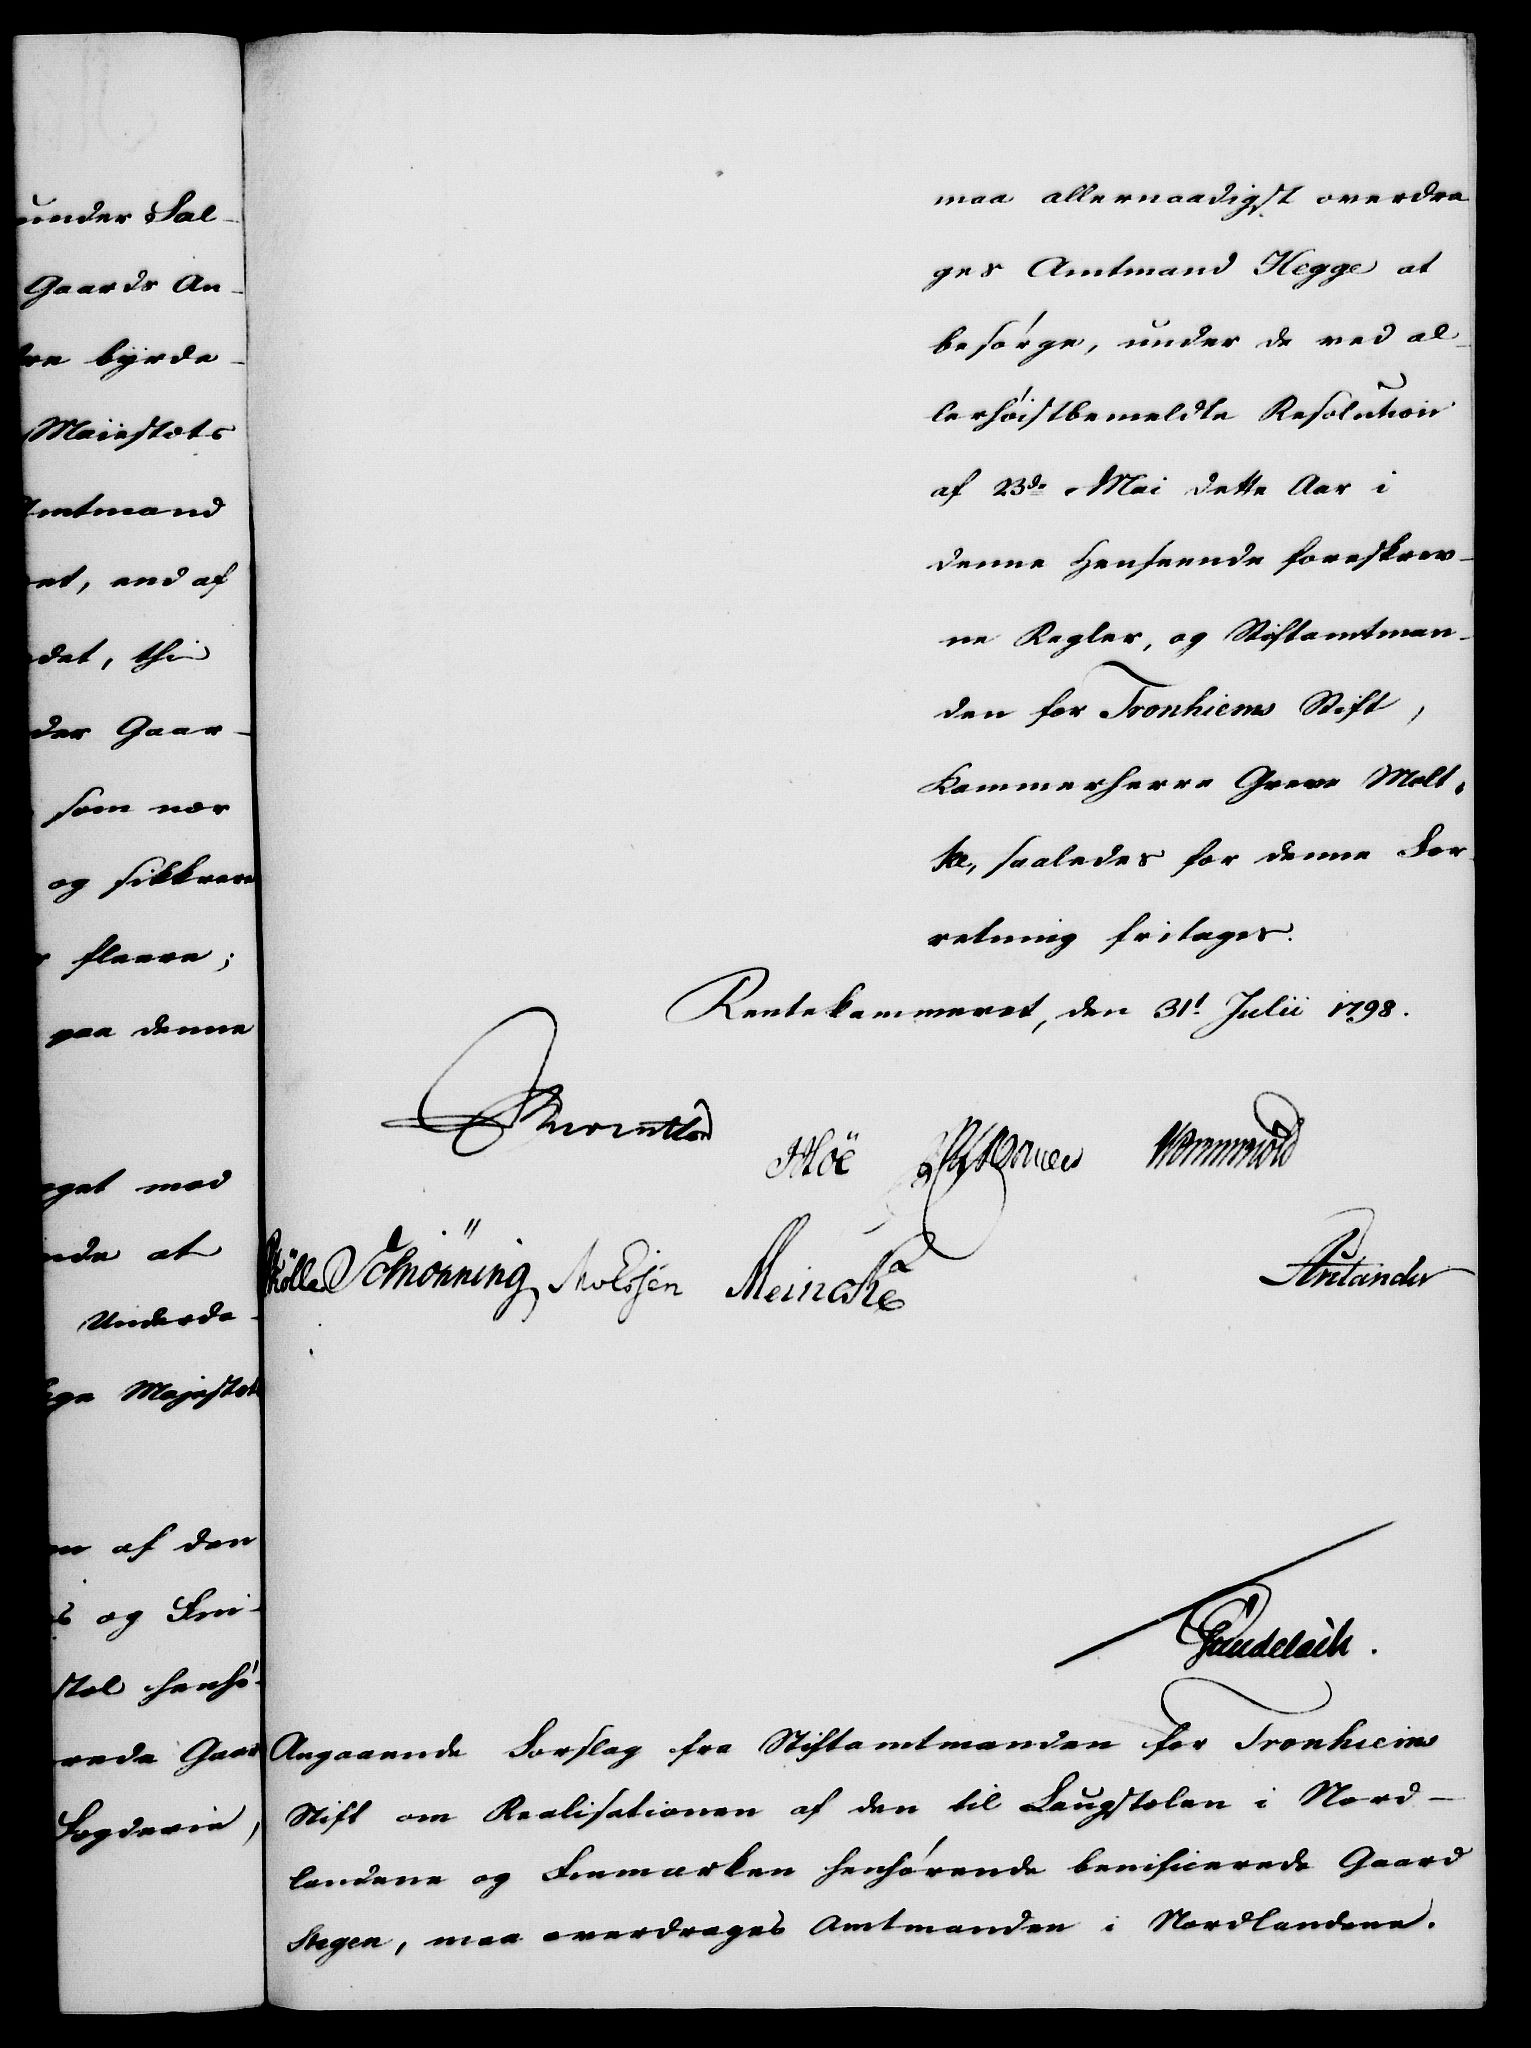 under Sal-
Gaards An-
byrde-
Maiestæts
Amtmand
et, end af
det, thi
der Gaar-
som nær
og sikkrere
fleere;
paa denne
get med
nde at
Underda-
ge Majestæt
af den
og Fin-
stol henhø-
rede Gaar
Fogderie,
maa allernaadigst overdra
ges Amtmand Hegge at
besørge, under de ved al-
lerhøistbemeldte Resolution
af 23de Mai dette Aar i
denne Henseende foreskrev-
ne Regler, og Stiftamtman-
den for Tronhiems Stift,
Kammerherre Greve Molt-
ke, saaledes for denne For-
retning fritages.
Rentekammeret, den 31t Julii 1798.
Høe Wormskiold
Schiönning Meincke
Gundelach.
Angaaende Forslag fra Stiftamtmanden for Tronhiems
Stift om Realisationen af den til Laugstolen i Nord-
landene og Finmarken henhørende benificerede Gaard
Stegen, maa overdrages Amtmanden i Nordlandene.